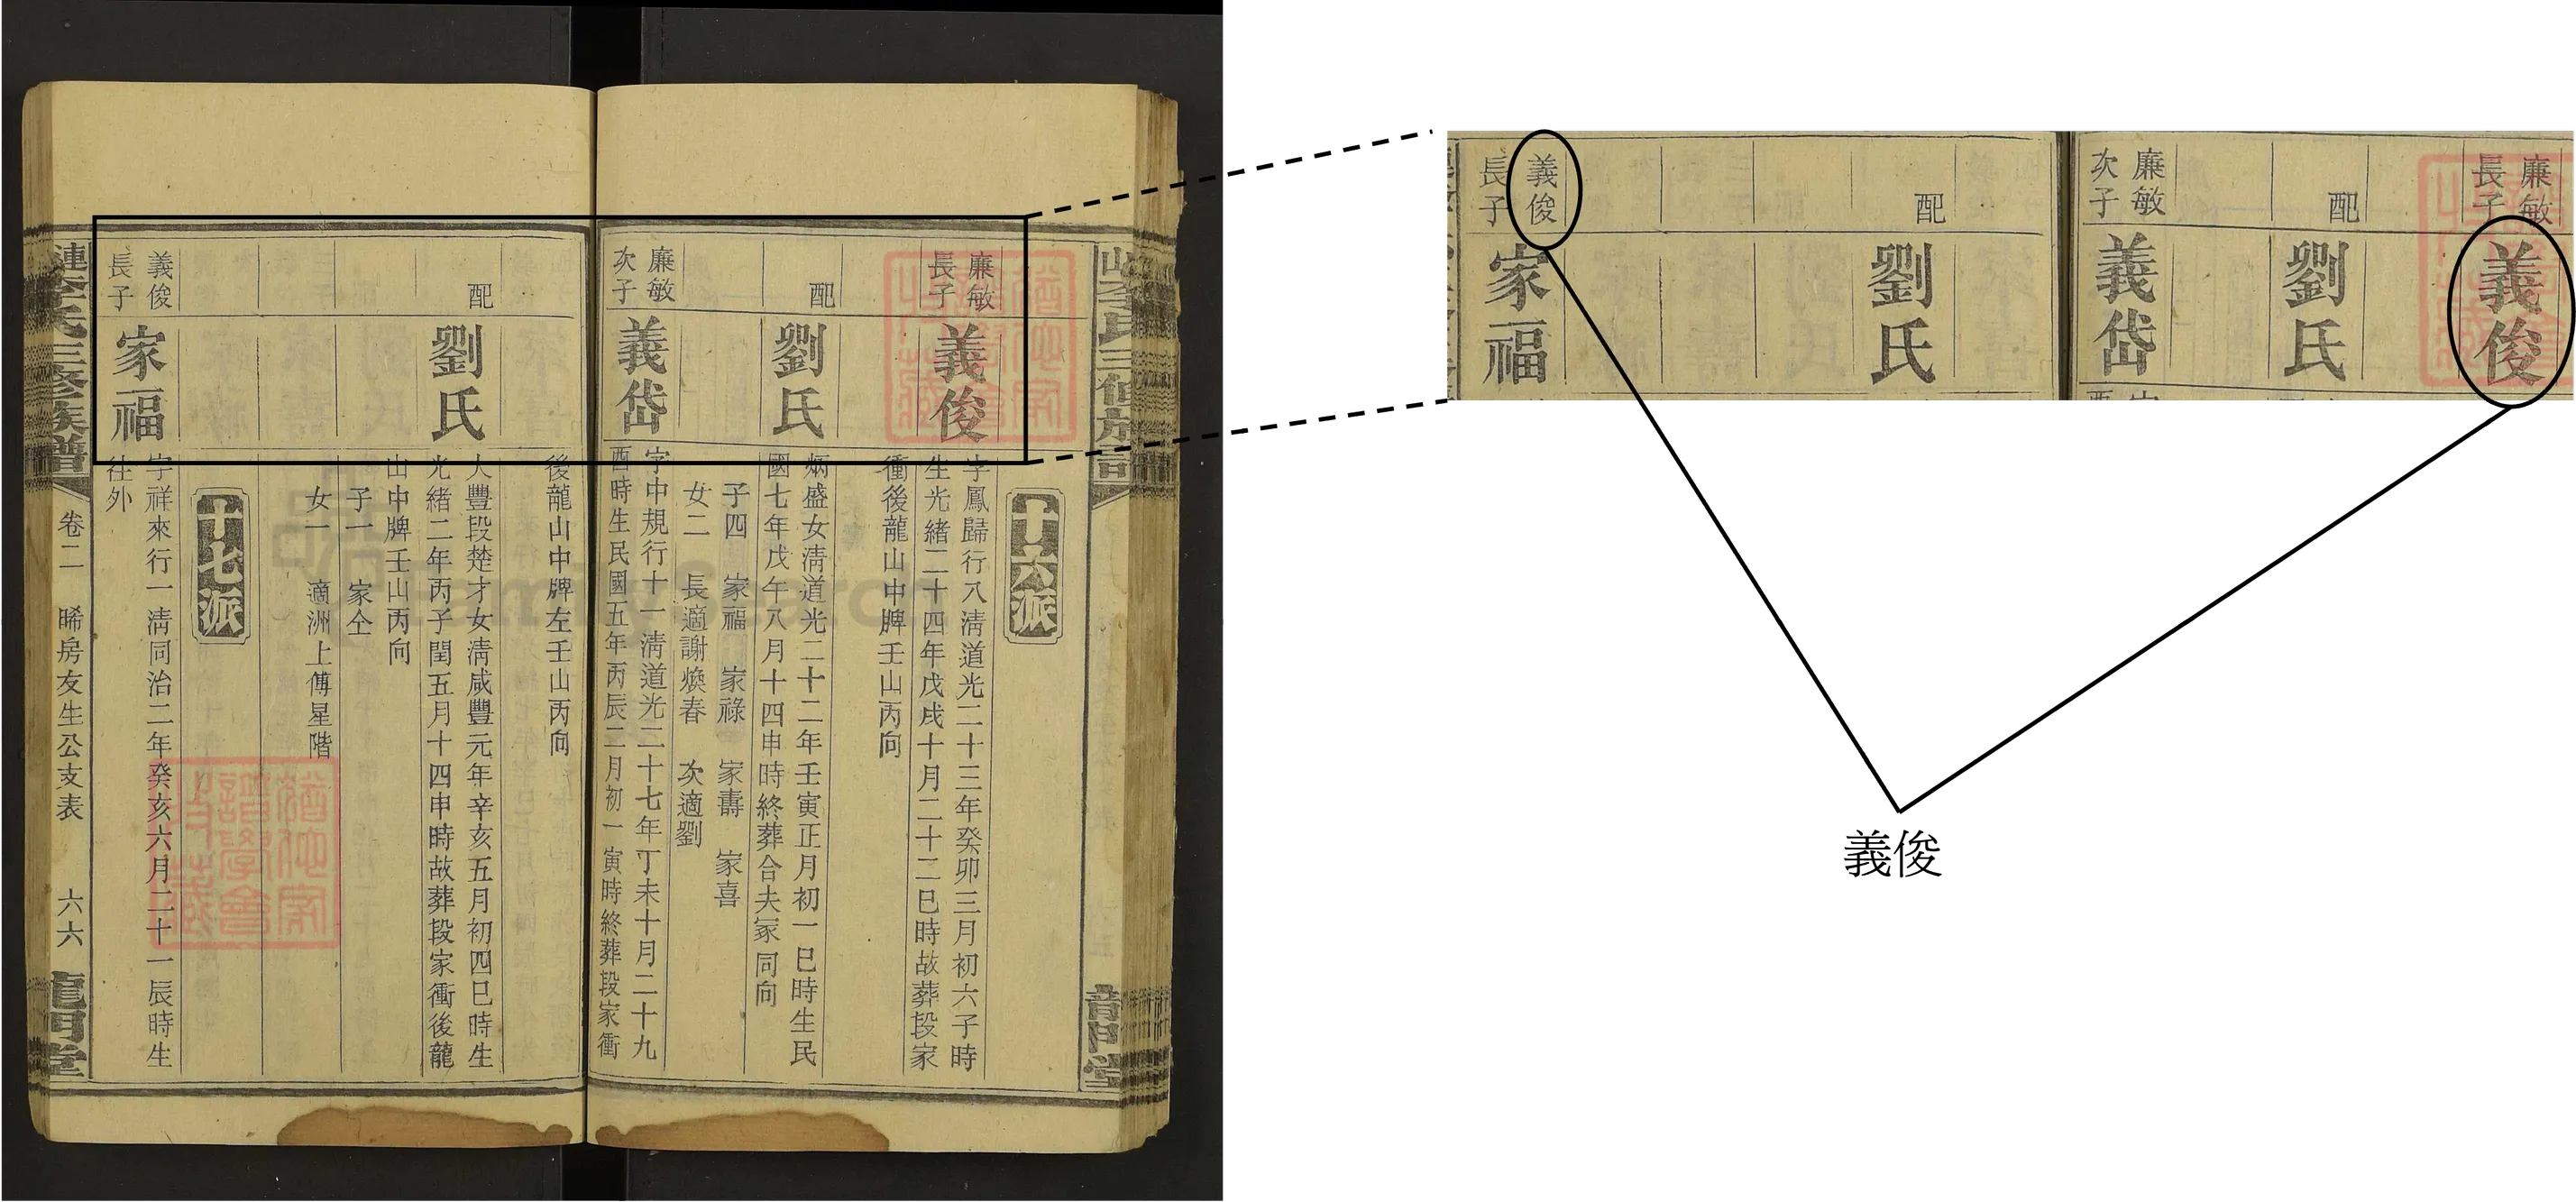 十六派
廉敏
長子
義俊
字鳳歸行八清道光二十三年癸卯三月初六子時
生光緒二十四年戊戌十月二十二巳時故葬段家
衝後龍山中牌壬山丙向
配
劉氏
炳盛女清道光二十二年壬寅正月初一巳時生民
國七年戊午八月十四申時終葬合夫冢同向
子四 家福 家祿 家壽 家喜
女二 長適謝煥春 次適劉
廉敏
次子
義岱
字中規行十一清道光二十七年丁未十月二十九
酉時生民國五年丙辰二月初一寅時終葬段家衝
後龍山中牌左壬山丙向
配
劉氏
人豐段楚才女清咸豐元年辛亥五月初四巳時生
光緒二年丙子閏五月十四申時故葬段家衝後龍
山中牌壬山丙向
子一 家仝
女一 適洲上傅星階
十七派
義俊
長子
家福
字祥來行一清同治二年癸亥六月二十一辰時生
往外
漣李氏三修族譜
卷二 晞房友生公支表 六六
龍門堂
廉敏
長子
義俊
配
劉氏
廉敏
次子
義岱
配
劉氏
義俊
長子
家福
義俊